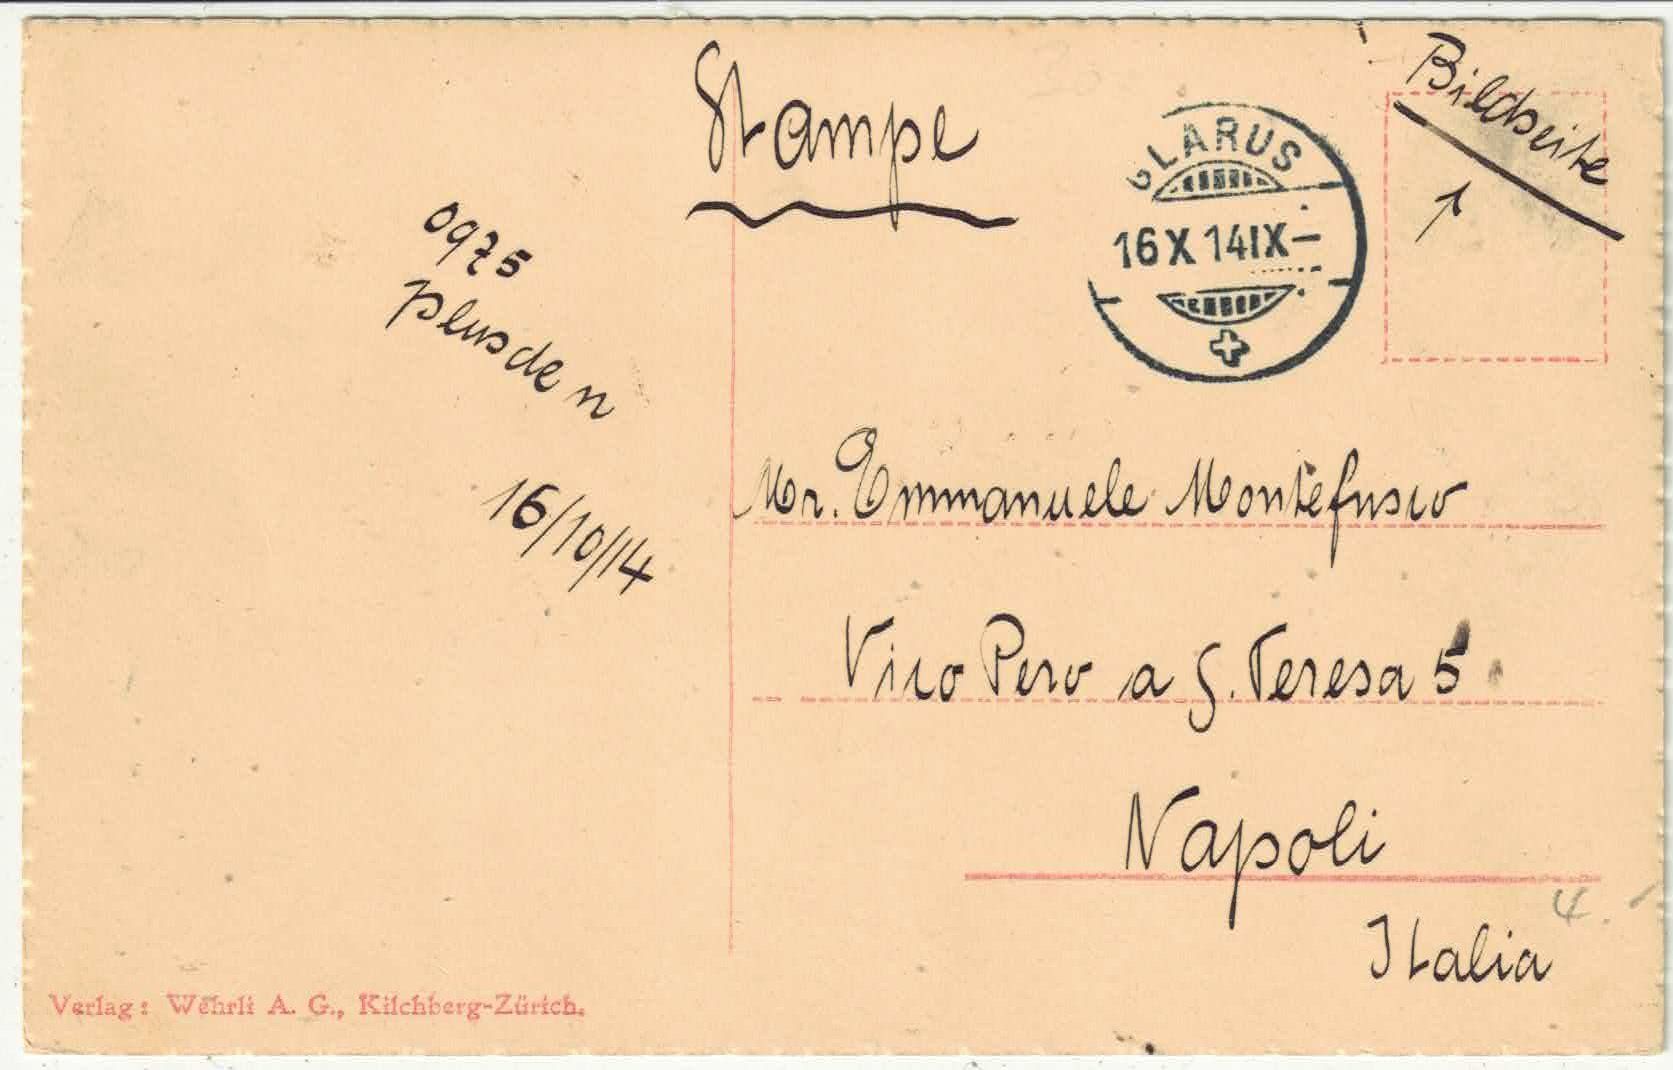 Stampe
Bildseite
GLARUS
16 X 14 IX –
0975
plus de n
16/10/14
Mr. Emmanuele Montefusco
Vico Pero a S. Teresa 5
Napoli
Italia
4.
Verlag: Wehrli A. G., Kilchberg-Zürich.